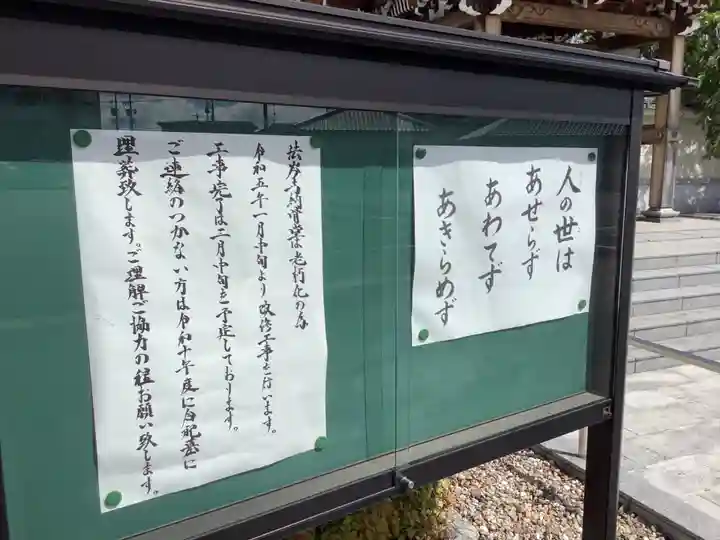 人の世は
あせらず
あわてず
あきらめず
納骨堂は老朽化の為
令和五年一月中旬より改修工事を行います。
工事完了は二月中旬を予定しております。
ご連絡のつかない方は令和十年度に
埋葬致します。ご理解ご協力の程お願い致します。